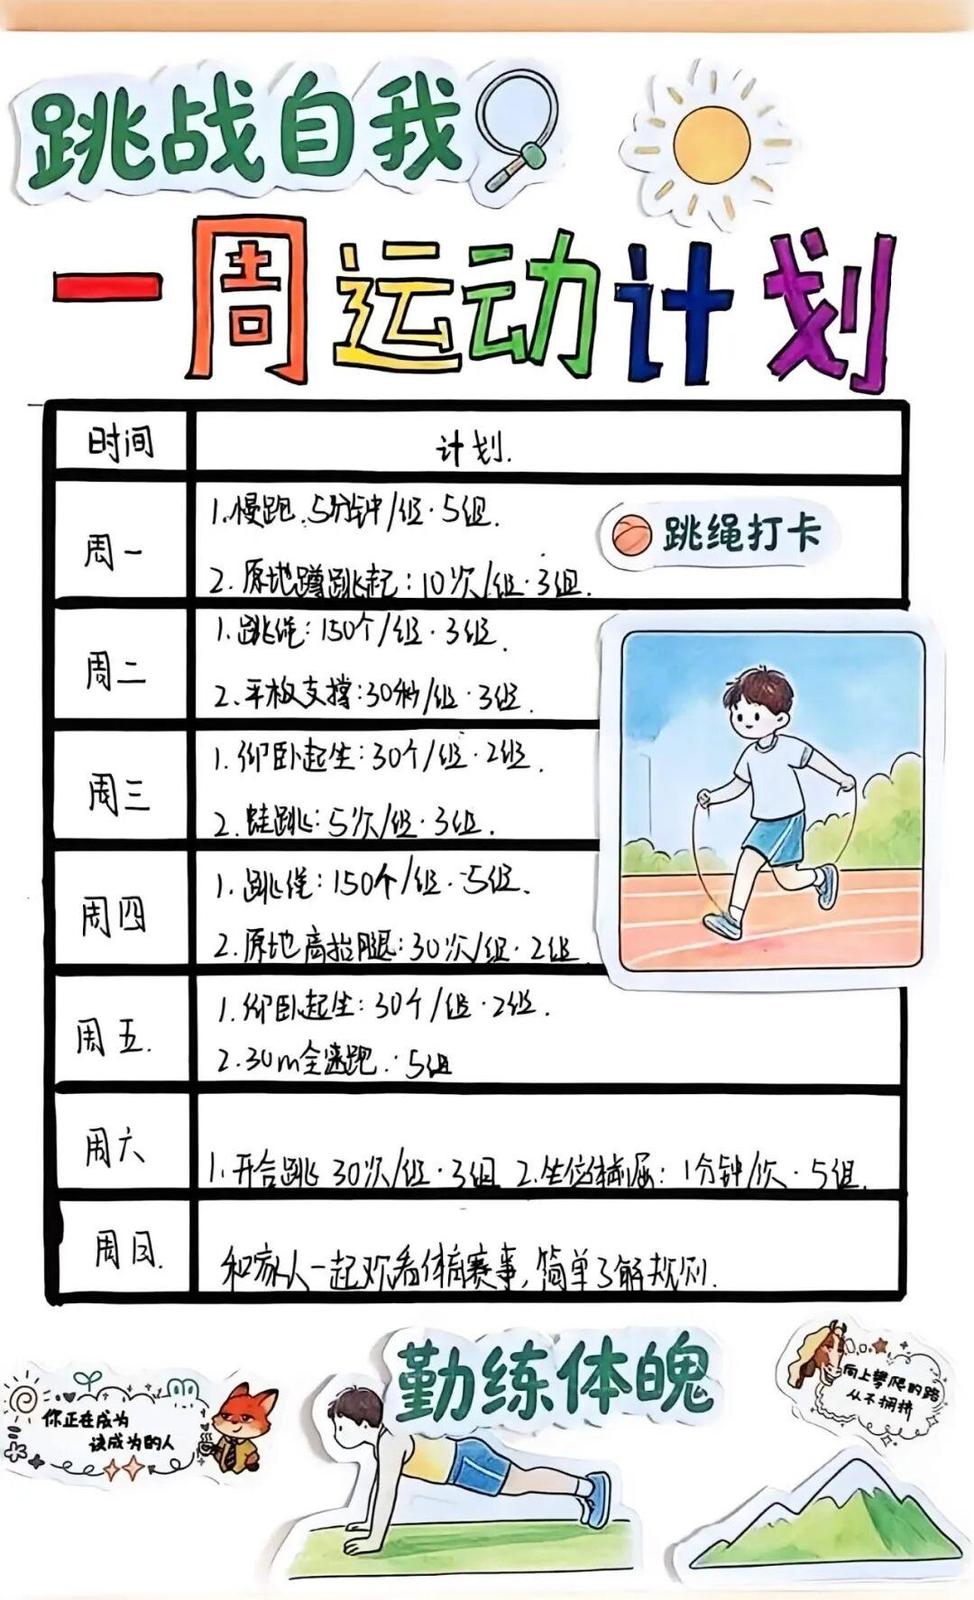 跳战自我
一周运动计划
时间 计划.
周一
1.慢跑.5分钟/组·5组.
2.原地蹲跳起:10次/组·3组.
跳绳打卡
周二
1.跳绳:150个/组·3组.
2.平板支撑:30秒/组·3组.
周三
1.仰卧起坐:30个/组·2组.
2.蛙跳:5次/组·3组.
周四
1.跳绳:150个/组·5组.
2.原地高抬腿:30次/组·2组.
周五.
1.仰卧起坐:30个/组·2组.
2.30m全速跑.·5组
周六
1.开合跳 30次/组·3组 2.坐位体前屈:1分钟/次·5组.
周日.
和家人一起观看体育赛事,简单了解规则.
勤练体魄
你正在成为
该成为的人
向上攀爬的路
从不拥挤